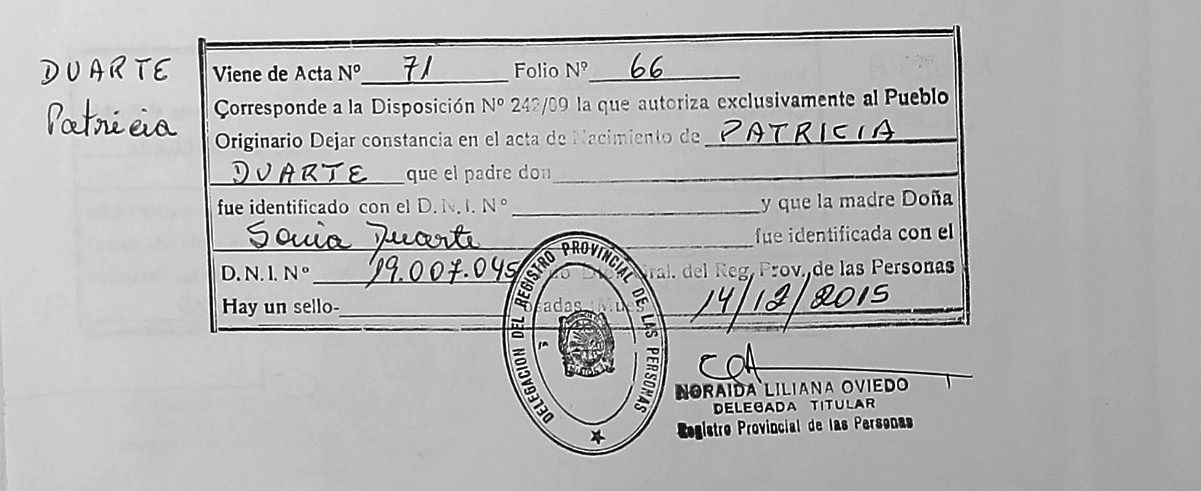 DUARTE
Patricia
Viene de Acta Nº 71 Folio Nº 66
Corresponde a la Disposición Nº 242/09 la que autoriza exclusivamente al Pueblo
Originario Dejar constancia en el acta de Nacimiento de PATRICIA
DUARTE que el padre don
fue identificado con el D.N.I. Nº y que la madre Doña
Sonia Duarte fue identificada con el
D.N.I. Nº 19.007.045 Gral. del Reg. Prov. de las Personas
Hay un sello- 14/12/2015
DELEGACION DEL REGISTRO PROVINCIAL DE LAS PERSONAS
NORAIDA LILIANA OVIEDO
DELEGADA TITULAR
Registro Provincial de las Personas